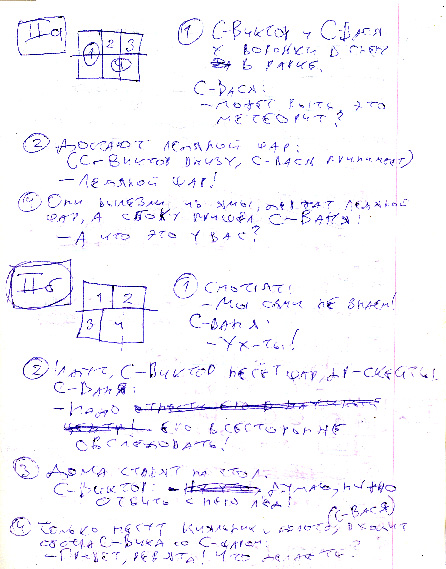 IIа
1 2 3
4
① С-Виктор и С-Ваня
у воронки в снегу
в парке.
С-Вася:
- Может быть, это
метеорит?
② Достают ледяной шар:
(С-Виктор внизу, С-Вася принимает)
- Ледяной шар!
Они вылезли из ямы, держат ледяной
шар, а сбоку пришёл С-Ваня:
- А что это у вас?
IIб
1 2
3 4
① Смотрят:
- Мы сами не знаем!
С-Ваня:
- Ух-ты!
② Идут, С-Виктор несёт шар,
С-Ваня:
- Надо
его всесторонне
обследовать!
③ Дома ставят на стол:
С-Виктор: - Думаю, нужно
отбить с него лёд!
(С-Вася)
④ Только несут молоток, входит
- Привет, ребята! Что делаете?